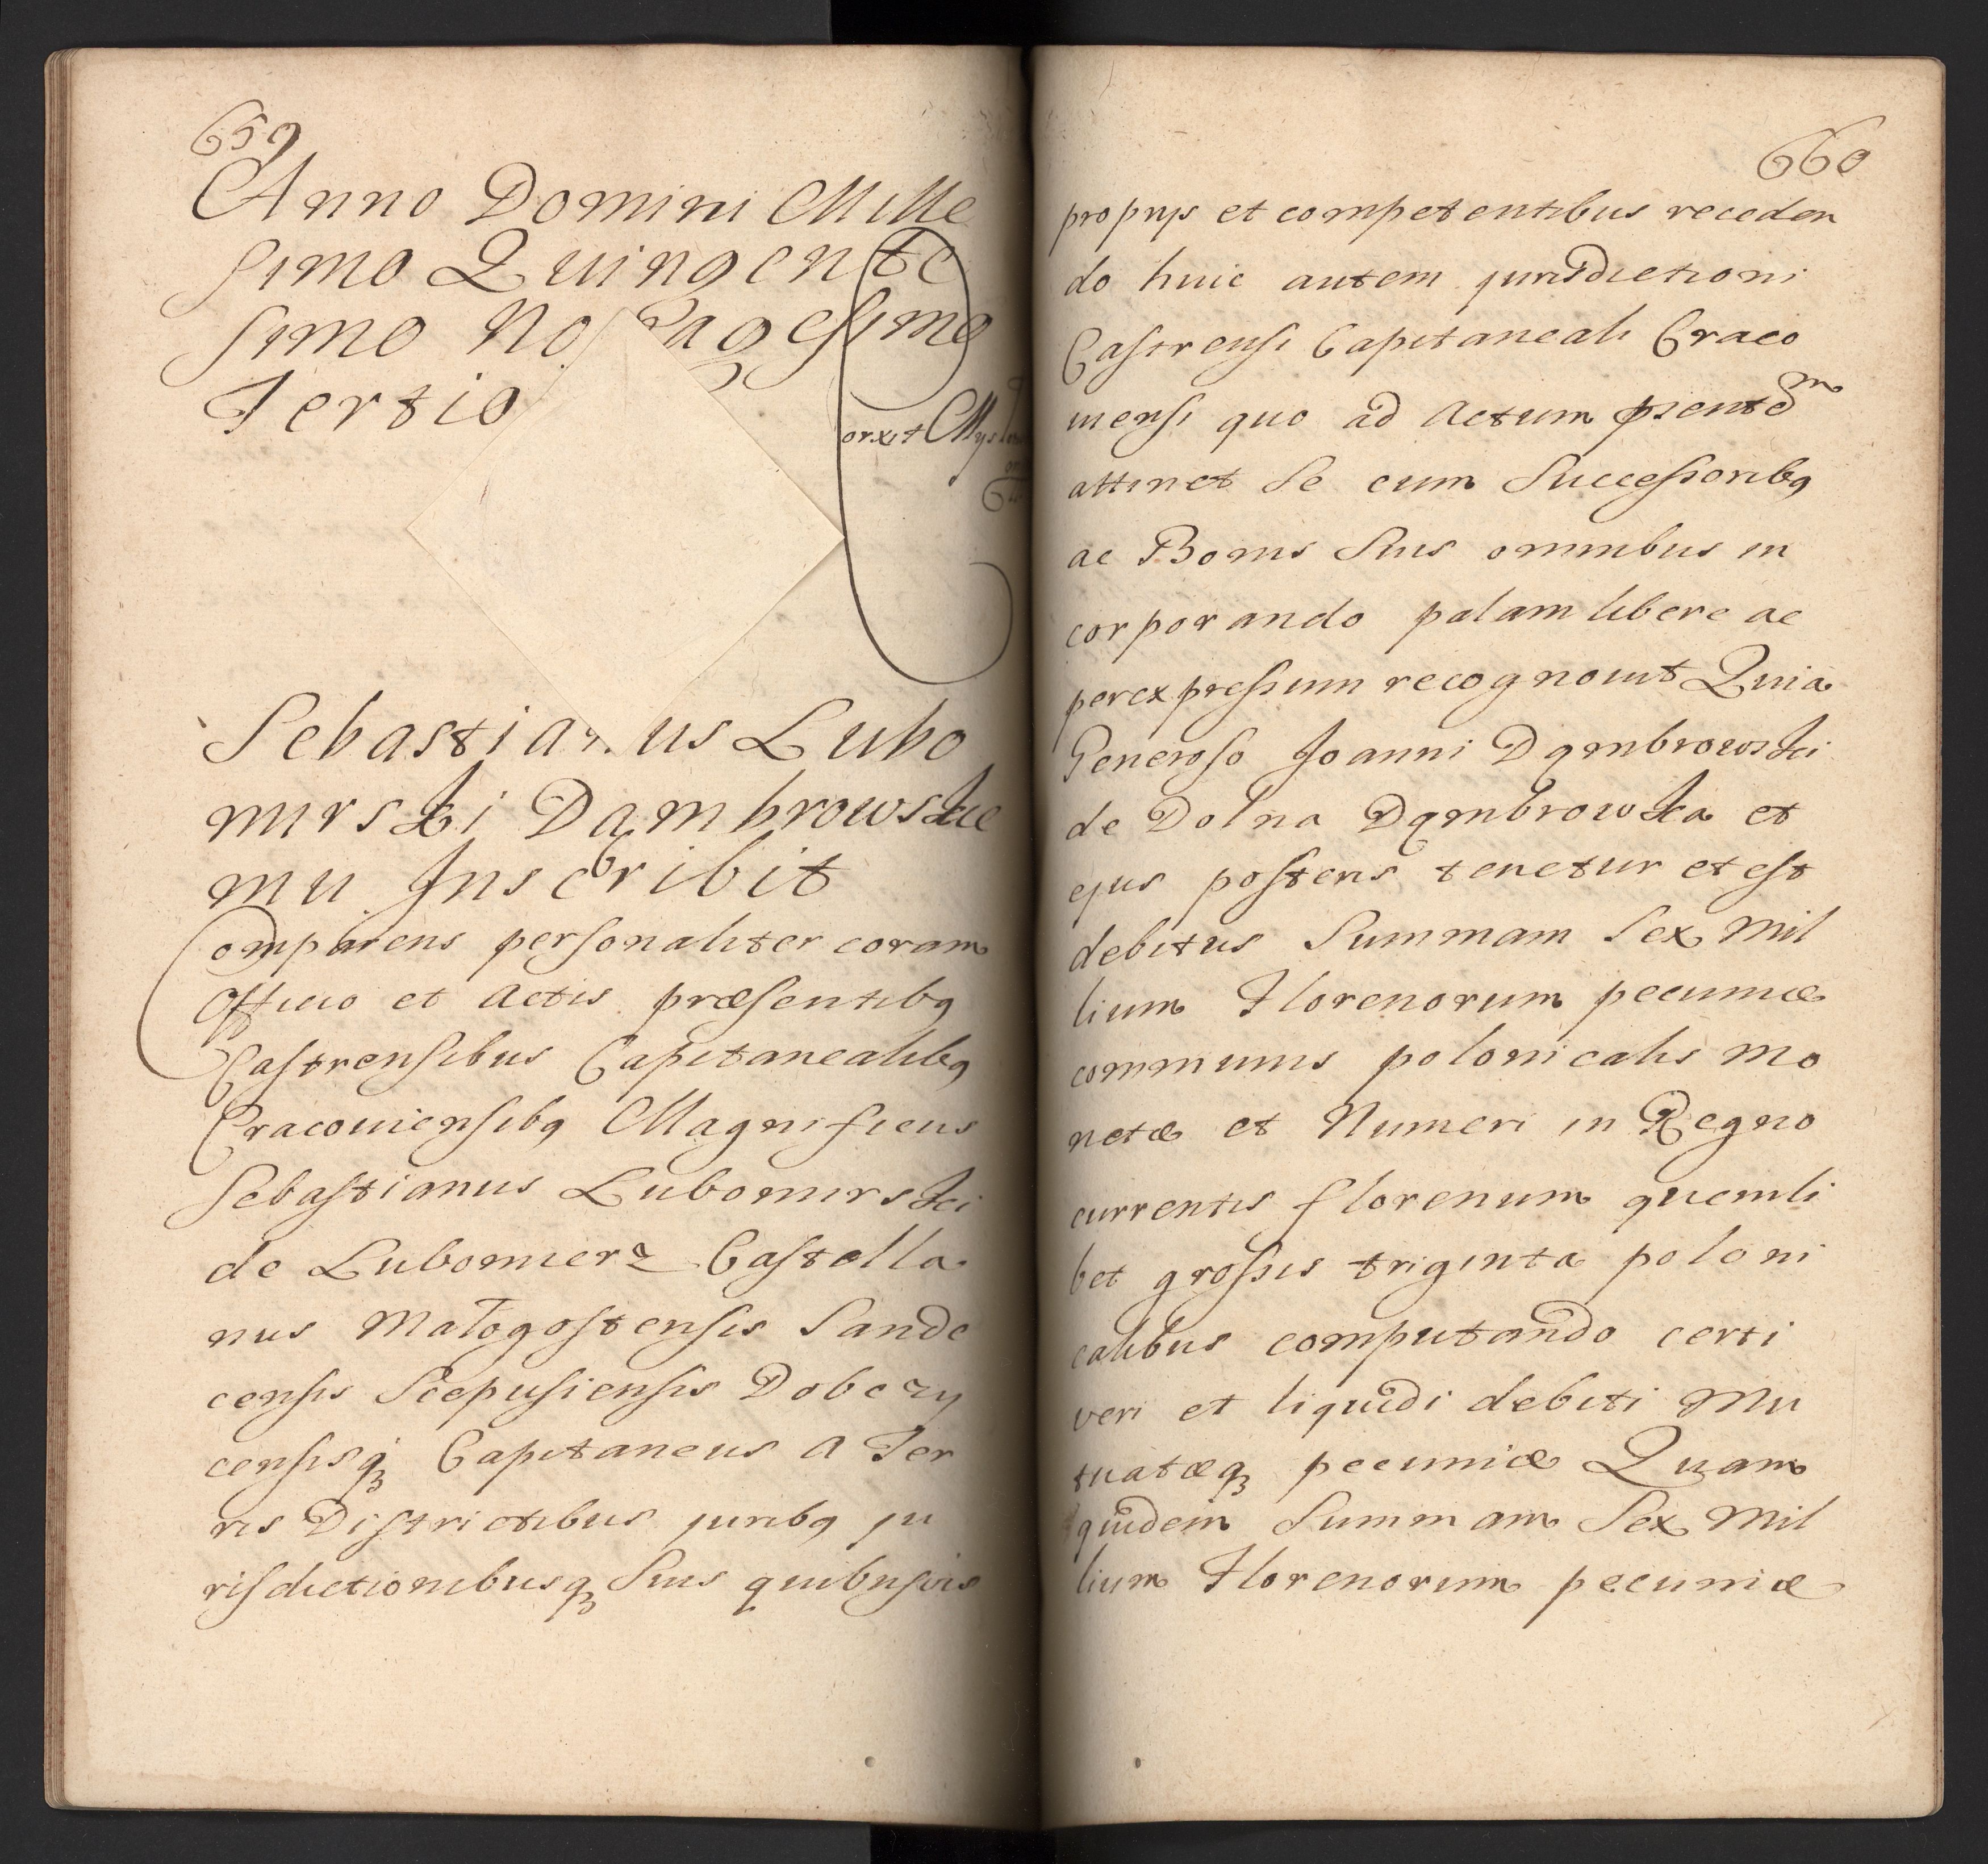 659
Anno Domini Mille
simo Quingente
simo No agesimo
Tertio
orxit
Sebastianus Lubo
mirski Dąmbrowskie
mu Inscribit
Comparens personaliter coram
Officio et Actis præsentibq
Castrensibus Capitanealibq
Cracouiensibq Magnificus
Sebastianus Lubomirski
de Lubomierz Castella
nus Małogostensis Sande
censis Scepusiensis Dobczy
censisq Capitaneus A Ter
ris Districtibus juribq ju
risdictionibusq Suis quibusuis
660
proprijs et competentibus receden
do huic autem jurisdictioni
Castrensi Capitaneali Craco
uiensi quo ad Actum
attinet Se cum Successoribq
ac Bonis Suis omnibus in
corporando palam libere ac
perexpressum recognouit Quia
Generoso Joanni Dąmbrowski
de Dolna Dąmbrowka et
ejus posteris tenetur et est
debitus Summam Sex Mil
lium Florenorum pecuniæ
communis polonicalis mo
netæ et Numeri in Regno
currentis florenum quemli
bet grossis triginta poloni
calibus computando certi
veri et liquidi debiti Mu
tuatæq pecuniæ Quam
quidem Summam Sex Mil
lium Florenorum pecuniæ